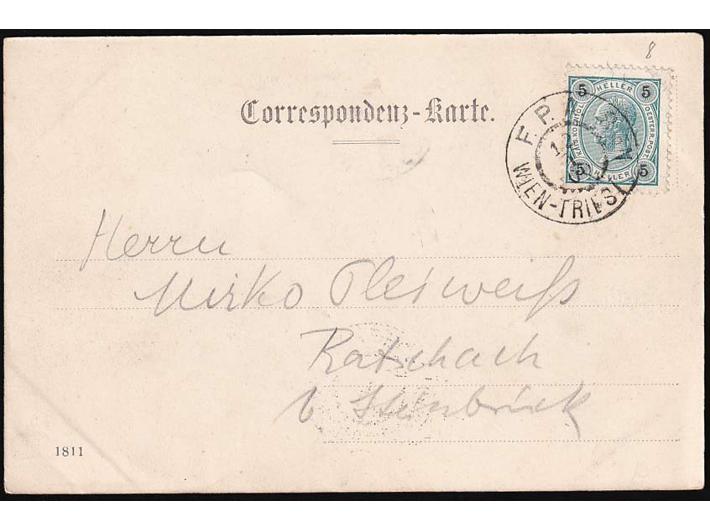 8
Correspondenz-Karte.
5 HELLER 5
KAIS. KOENIGL. OESTERR. POST.
5 HELLER 5
F. P. A.
WIEN-TRIEST
Herrn
Mirko Pleiweiß
Ratschach
b Steinbrück
1811